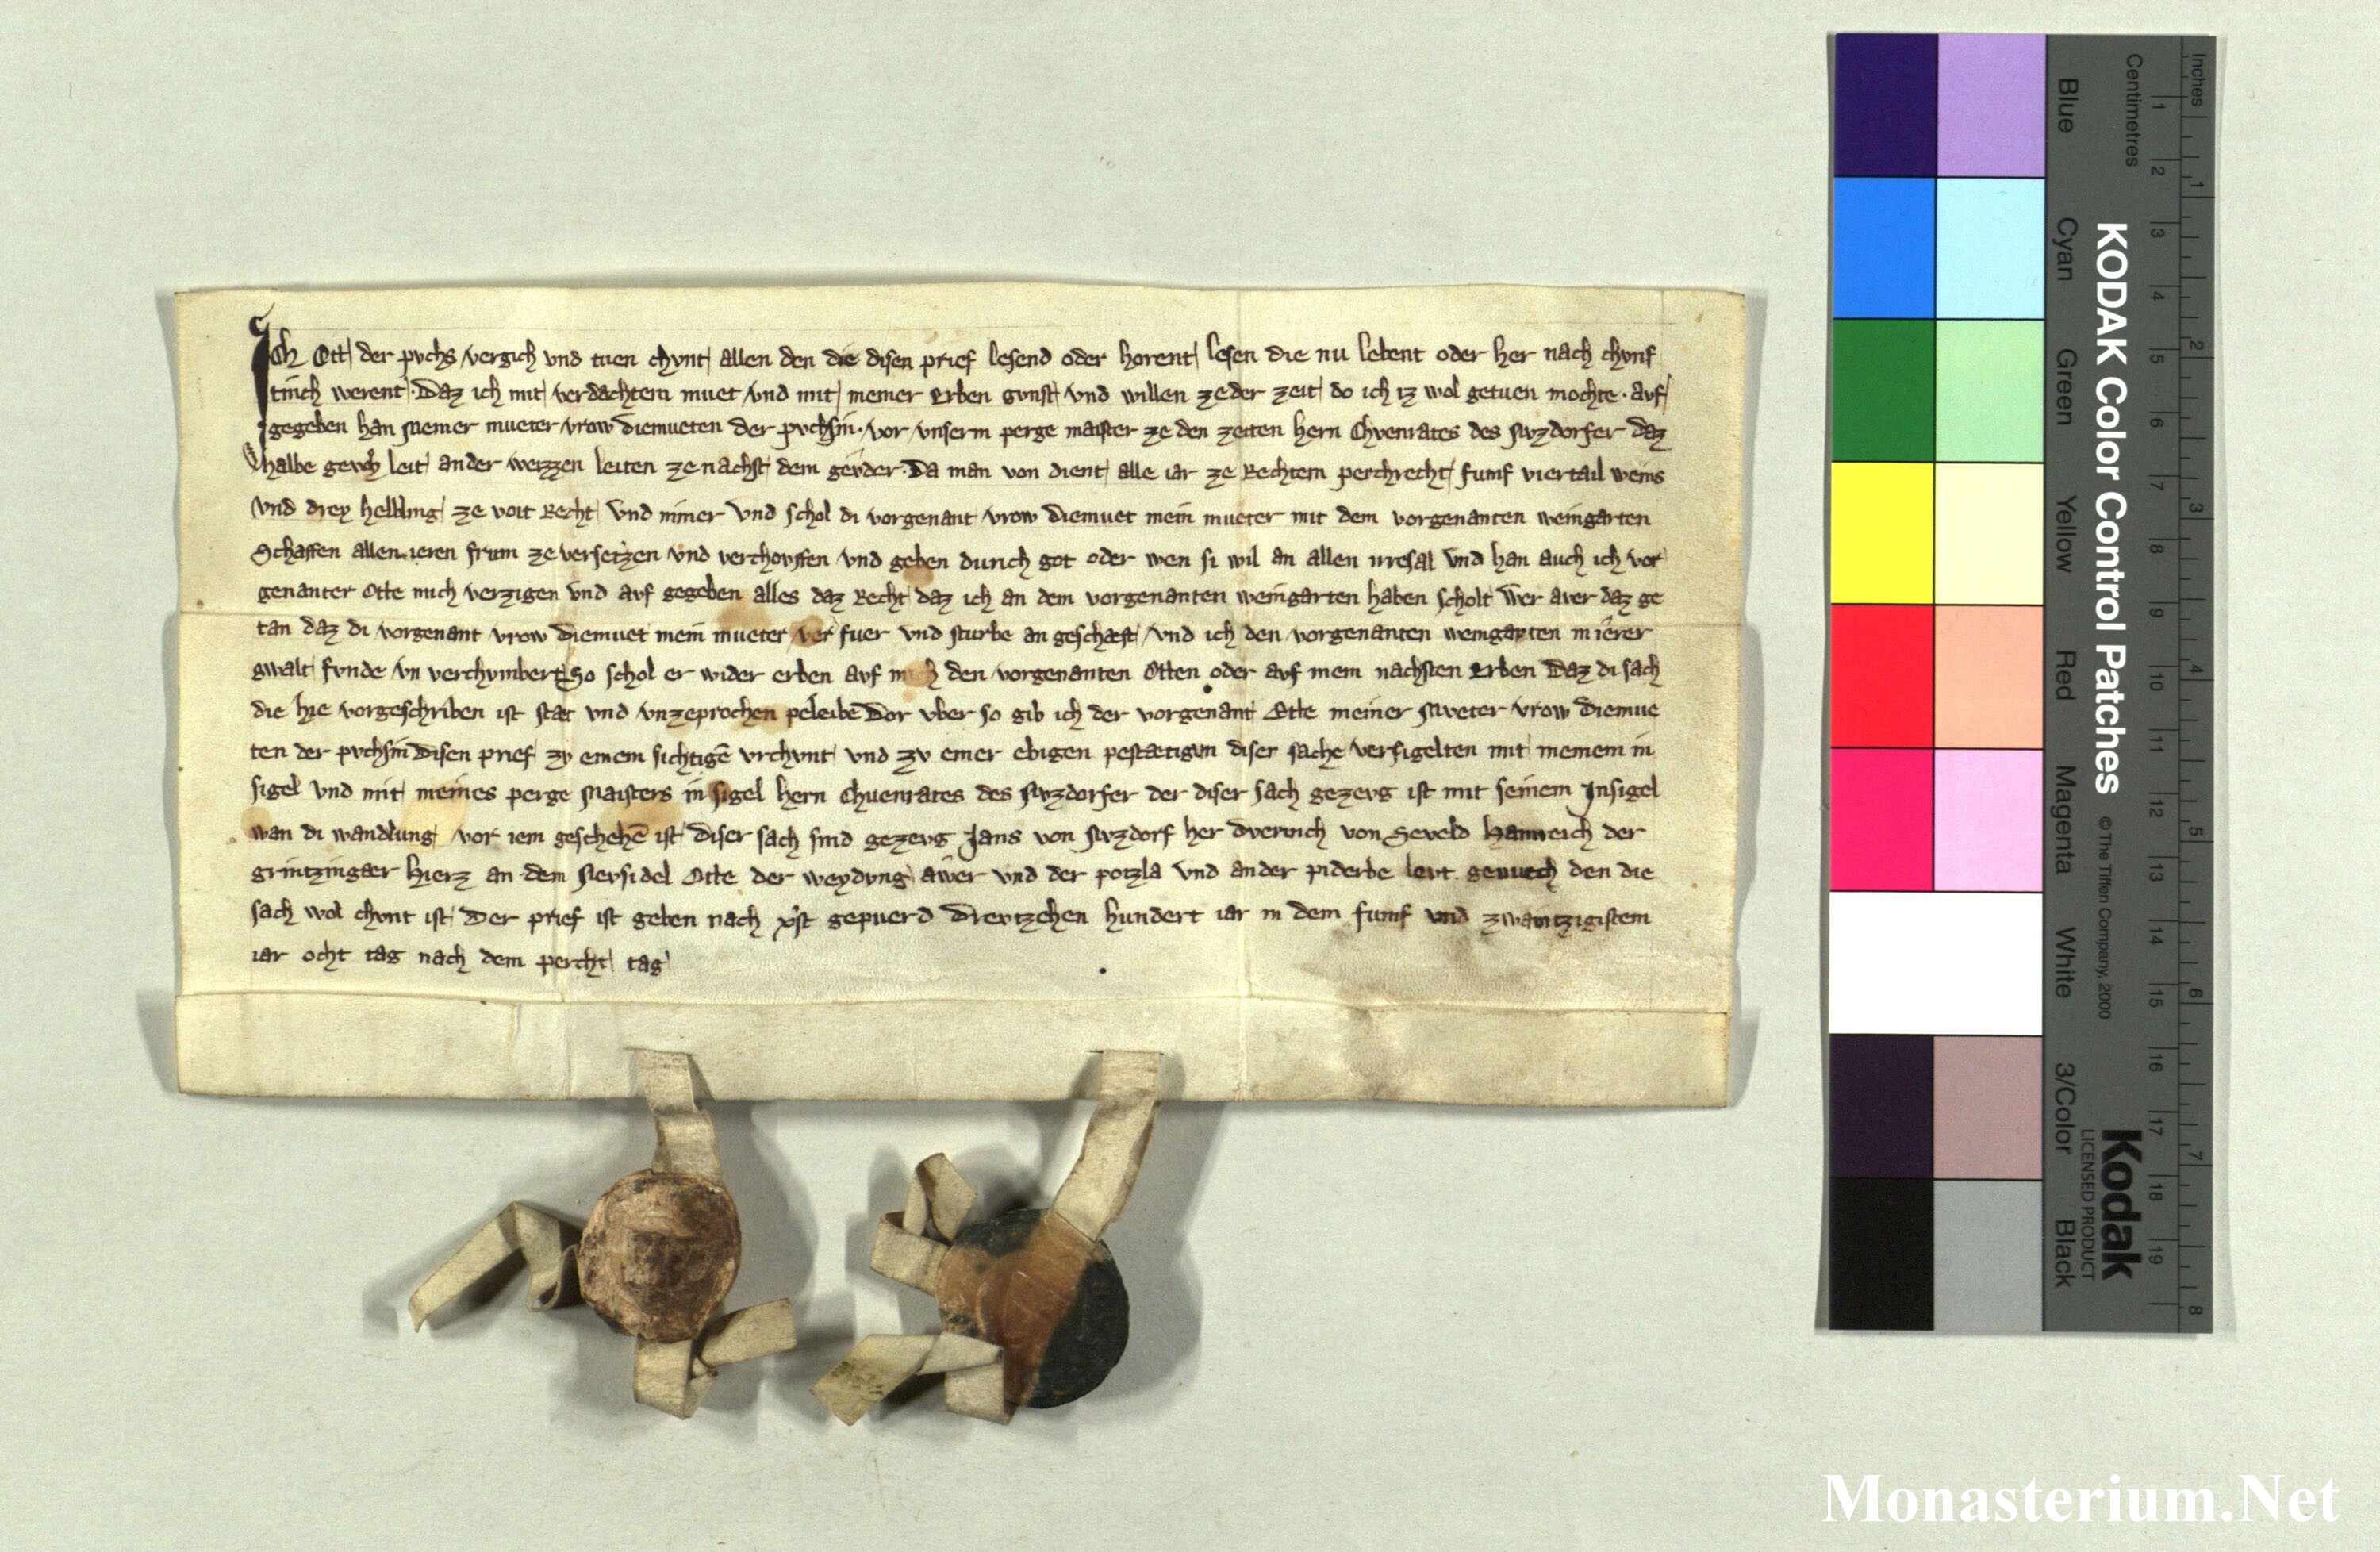 Ich Ott der pvchs vergich vnd tuen chvnt allen den die disen prief lesend oder horent lesen die nu lebent oder her nach chvnf
tinch werent · Daz ich mit verdachtem muet vnd mit meiner Erben gvnst vnd willen ze der zeit do ich iz wol getuen mochte · avf
gegeben han meiner mueter vrow diemueten der pvchsin · vor vnserm perge maister ze den zeiten hern Chvenrates des daz
halbe leit an der weizzen leiten ze nachst dem Da man von dient alle iar ze Rechtem perchrecht fumf viertail weins
vnd drey helbling ze voit Recht vnd nimer vnd schol di vorgenant vrow Diemuet mein mueter mit dem vorgenanten weingarten
Schaffen allen ieren frum ze versetzen vnd verchovffen vnd geben durich got oder wen si wil an allen irresal vnd han auch ich vor
genanter Otte mich verzigen vnd avf gegeben alles daz Recht daz ich an dem vorgenanten weingarten haben scholt wer aver daz ge
tan daz di vorgenant vrow Diemuet mein mueter ver fuer vnd sturbe an geschæft vnd ich den vorgenanten weingarten in ierer
gwalt fvnde vn verchvmbert So schol er wider erben avf den vorgenanten Otten oder avf mein nachsten Erben Daz di sach
die hie vorgeschriben ist stæt vnd vnzeprochen peleibē Dor vber so gib ich der vorgenant Otte meiner mveter vrow Diemue
ten der pvchsin Disen prief zv einem sichtigē vrchvnt vnd zv einer ebigen pestætigvn diser sache versigelten mit meinem in
sigel vnd mit meines perge maisters in sigel hern Chuenrates des der diser sach gezevg ist mit seinem Insigel
wan di wandlung vor iem geschehē ist diser sach sind gezevg Jans von her von Seveld der
grintzingær Hierz an dem Otte der vnd der potzla vnd ander piderbe levt genuech den die
sach wol chvnt ist Der prief ist geben nach xp̄st gepuerd Drevtzehen hundert iar in dem fumf vnd zwaintzigistem
iar ocht tag nach dem percht tag
KODAK Color Control Patches
© The Tiffen Company, 2000
Kodak
LICENSED PRODUCT
Blue Cyan Green Yellow Red Magenta White 3/Color Black
Centimetres
1 2 3 4 5 6 7 8 9 10 11 12 13 14 15 16 17 18 19
Inches
1 2 3 4 5 6 7 8
Monasterium.Net